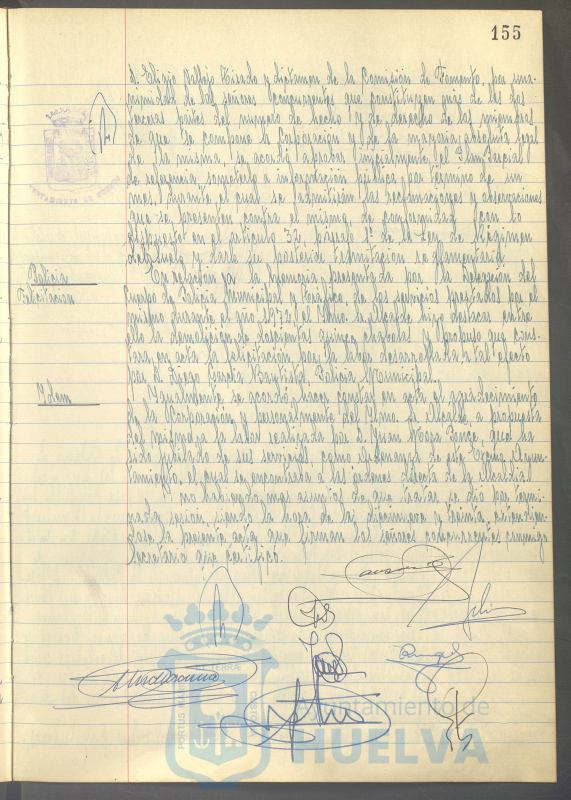 155
D. Eligio Vallejo Tirado y dictamen de la Comisión de Fomento, por una-
nimidad de los señores concurrentes que constituyen más de las dos
terceras partes del número de hecho y de derecho de los miembros
de que se compone la Corporación y de la mayoría absoluta legal
de la misma, se acordó aprobar inicialmente el Plan Parcial
de referencia, someterlo a información pública por término de un
mes, durante el cual se admitirán las reclamaciones y observaciones
que se presenten contra el mismo, de conformidad con lo
dispuesto en el artículo 32, párrafo 1º de la Ley de Régimen
del Suelo y darle su posterior tramitación reglamentaria.
Policía
Felicitación
En relación a la Memoria presentada por la Delegación del
Cuerpo de Policía Municipal y Tráfico, de los servicios prestados por el
mismo durante el año 1972, el Ilmo. Sr. Alcalde hizo destacar entre
ello la demolición de doscientas quince chabolas y propuso que cons-
tara en acta la felicitación por la labor desarrollada a tal efecto
por D. Diego García Bautista, Policía Municipal.
Idem
Igualmente se acordó hacer constar en acta el agradecimiento
de la Corporación y personalmente del Ilmo. Sr. Alcalde, a propuesta
del mismo, a la labor realizada por D. Juan Ponce, que ha
sido jubilado de sus servicios, como Ordenanza de este Excmo. Ayun-
tamiento, el cual se encontraba a las órdenes directa de la Alcaldía.
Y no habiendo más asuntos de que tratar se dio por termi-
nada sesión, siendo la hora de las diecinueve y treinta, extendién-
dose la presente acta que firman los señores comparecientes conmigo
Secretario que certifico.
PORTUS MARIS ET TERRAE CUSTODIA
Ayuntamiento de
HUELVA